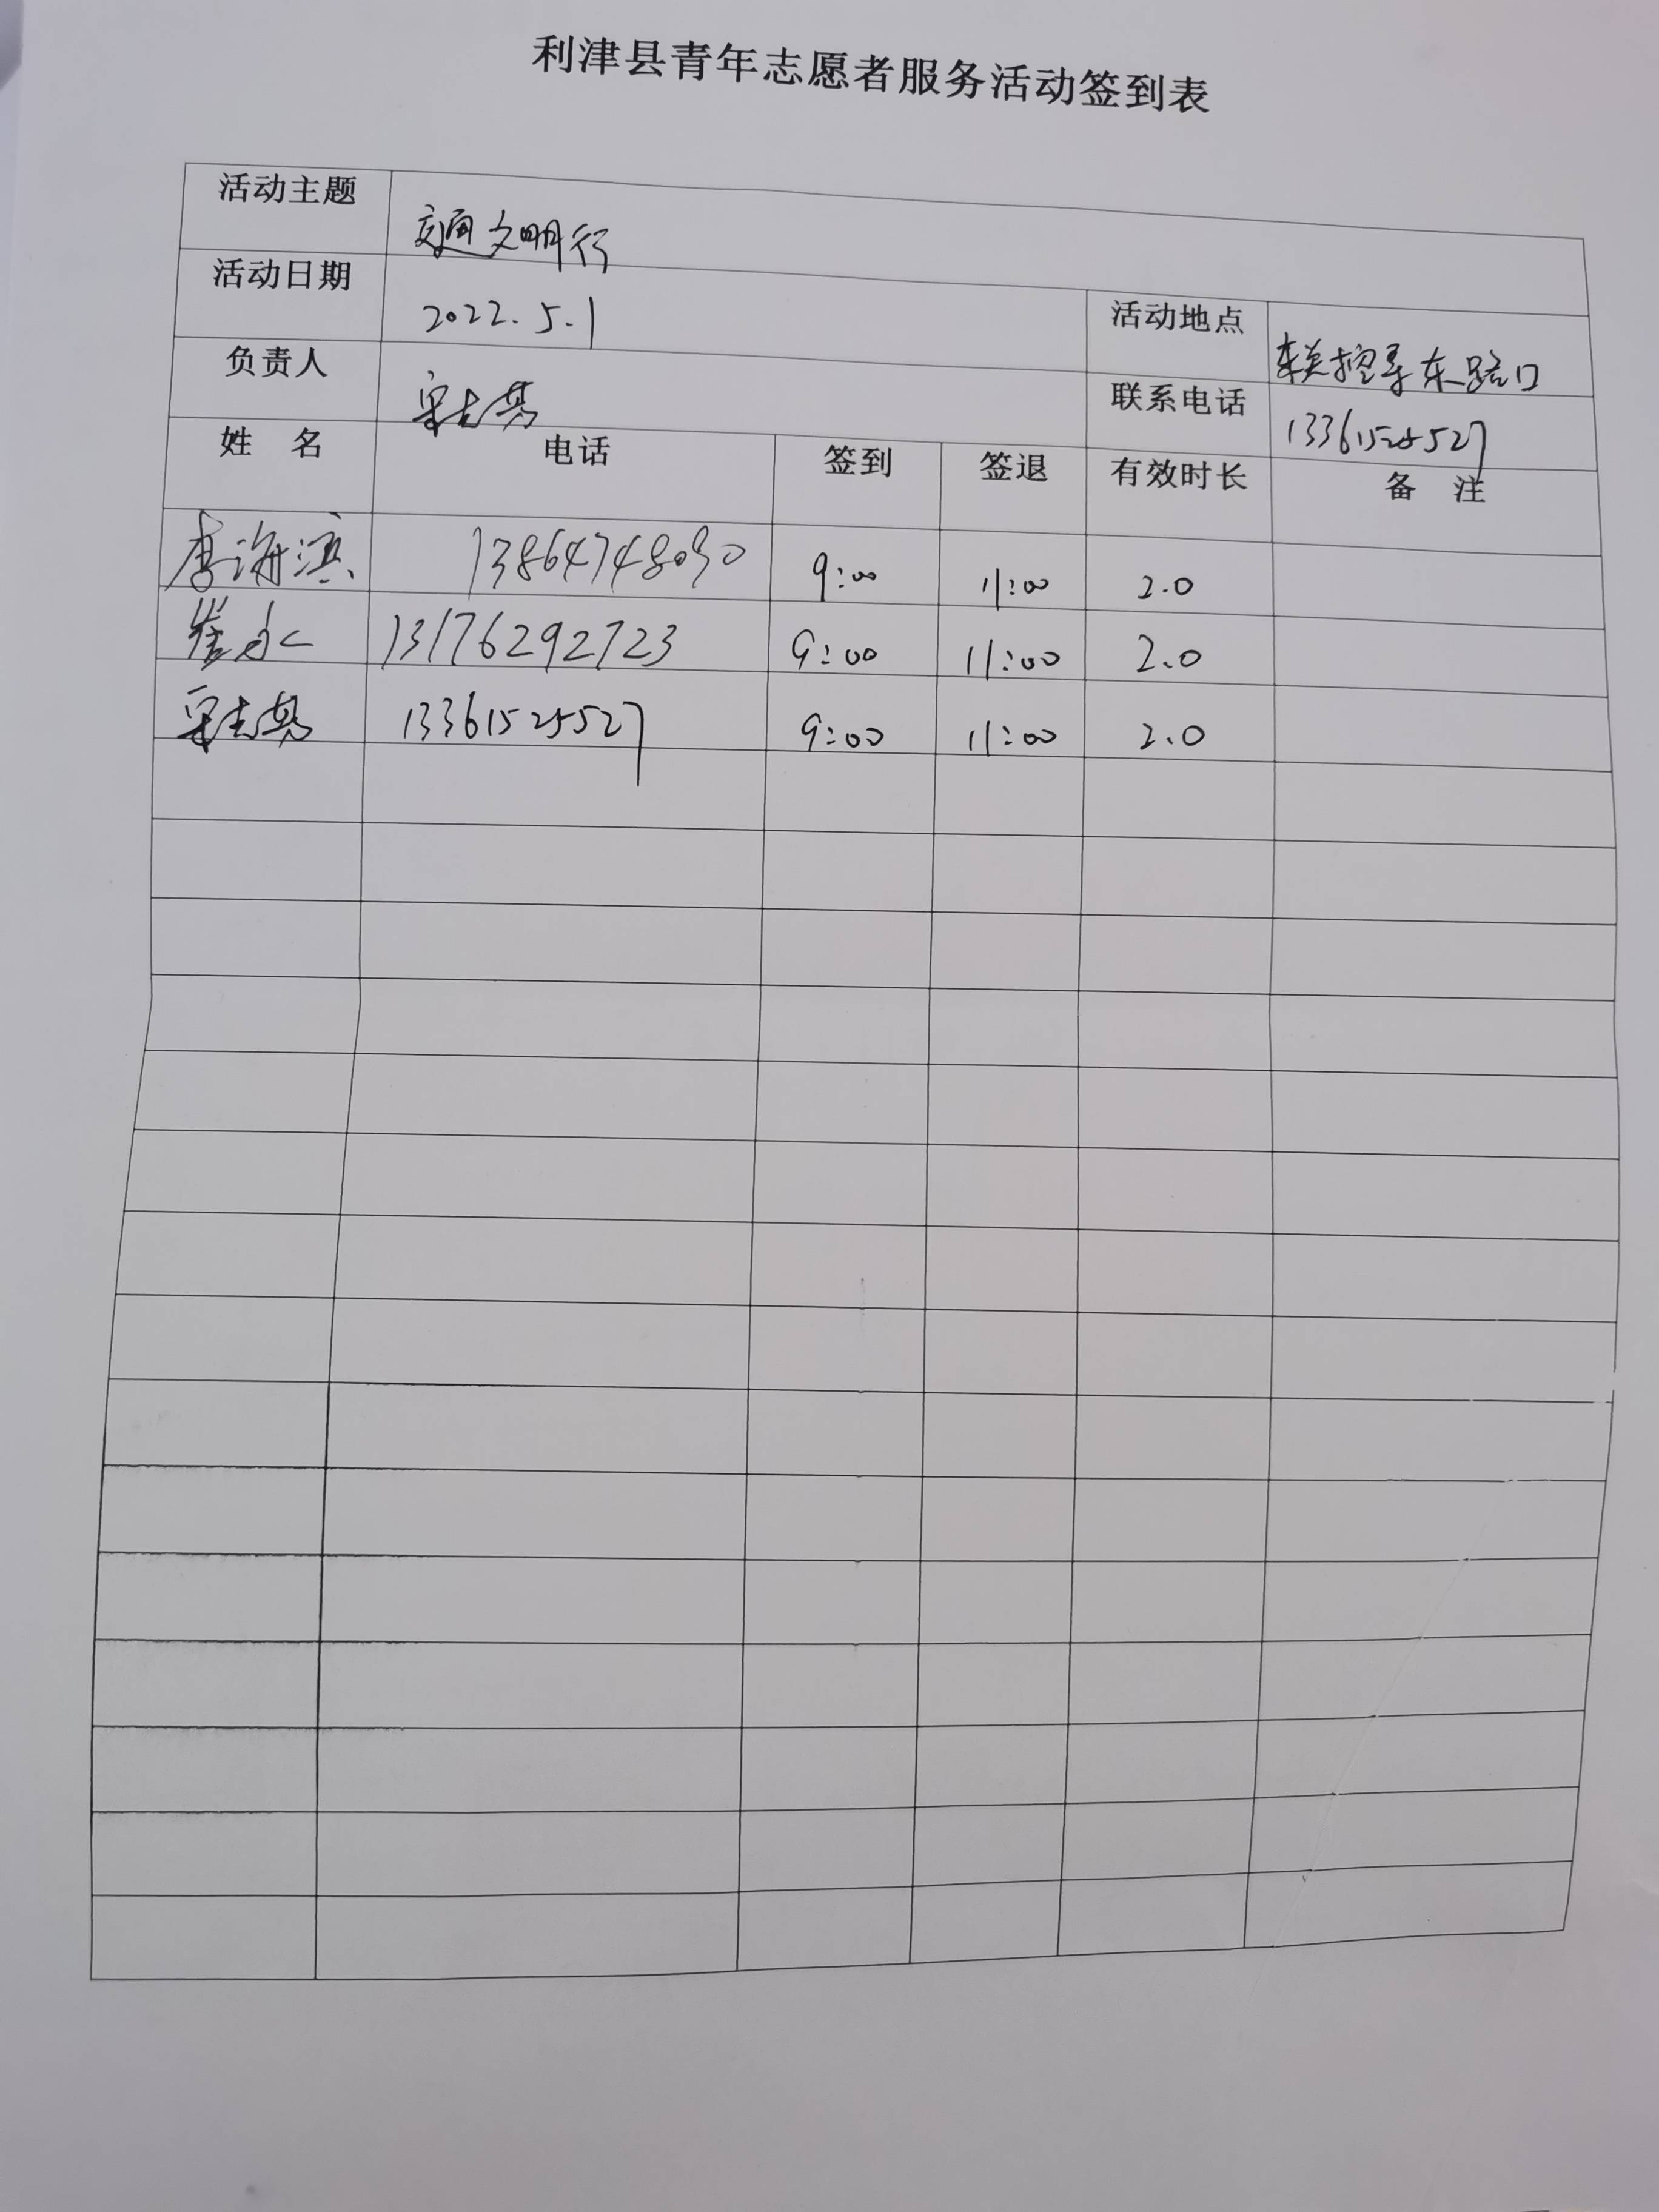 利津县青年志愿者服务活动签到表
活动主题 交通文明行
活动日期 2022.5.1 活动地点 路口
负责人 联系电话 13361525527
姓 名 电话 签到 签退 有效时长 备 注
李海滨 13864748090 9:00 11:00 2.0
崔永 13176292723 9:00 11:00 2.0
13361525527 9:00 11:00 2.0